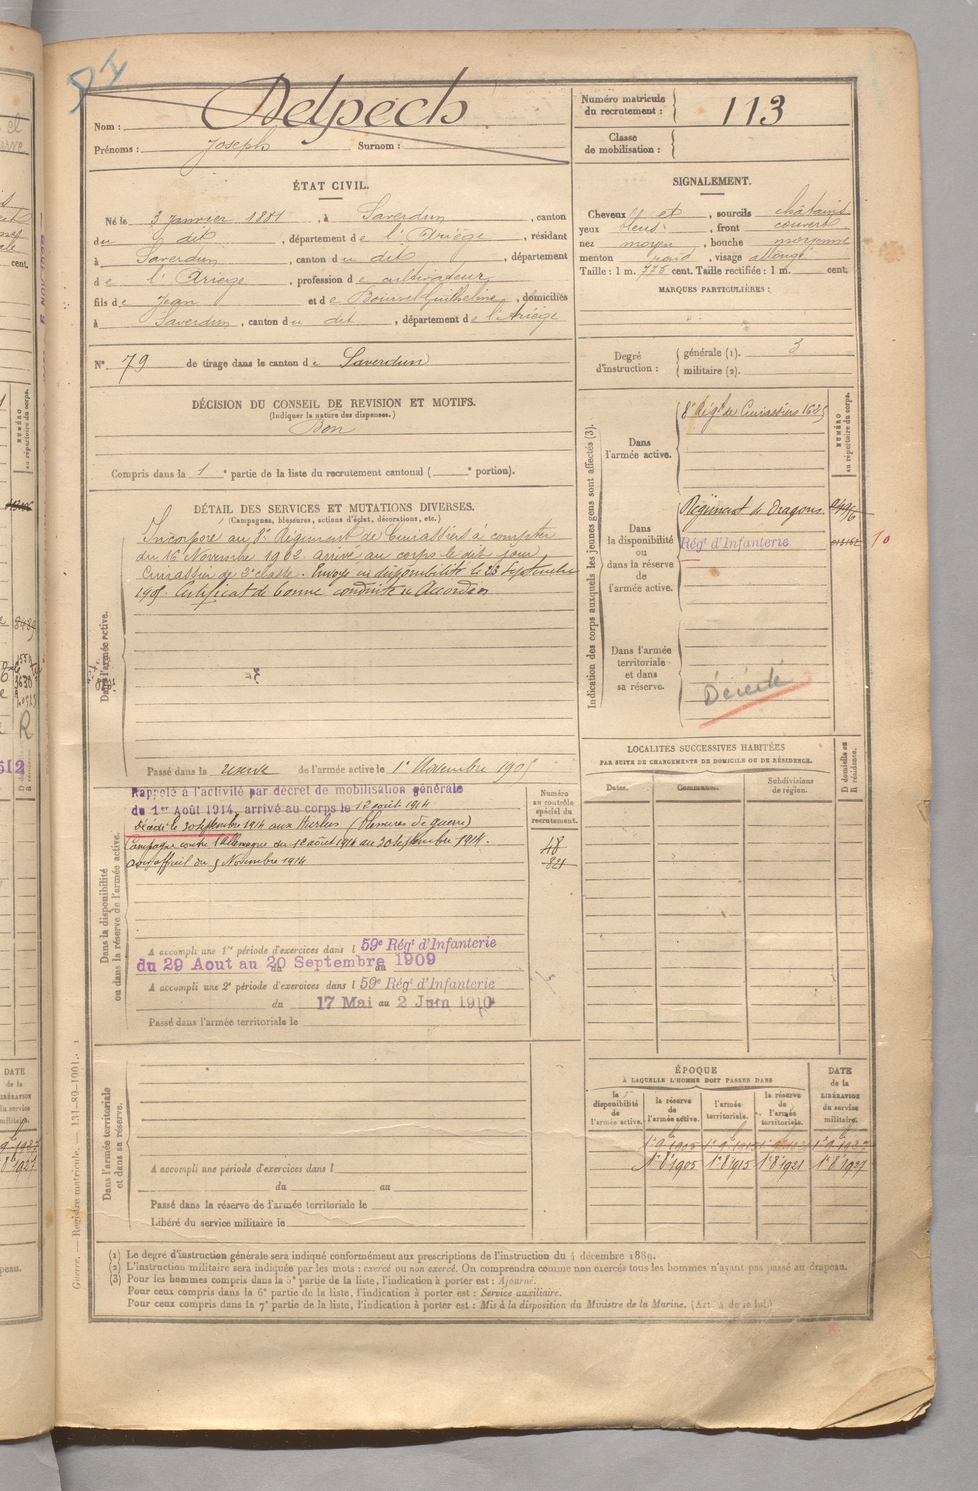 Nom : Delpech
Prénoms : Joseph Surnom :
Numéro matricule du recrutement : 113
Classe de mobilisation :
ÉTAT CIVIL.
Né le 3 Janvier 1881, à Saverdun, canton
du dit, département de l'Ariège, résidant
à Saverdun, canton du dit, département
de l'Ariège, profession de cultivateur
fils de Jean et de Guilhelmine, domiciliés
à Saverdun, canton du dit, département de l'Ariège
N° 79 de tirage dans le canton de Saverdun
SIGNALEMENT.
Cheveux et, sourcils châtains
yeux bleus, front couvert
nez moyen, bouche moyenne
menton rond, visage allongé
Taille : 1 m. 775 cent. Taille rectifiée : 1 m. cent.
MARQUES PARTICULIÈRES :
Degré d'instruction : générale (1). 3
militaire (2).
DÉCISION DU CONSEIL DE REVISION ET MOTIFS.
(Indiquer la nature des dispenses.)
Bon
Compris dans la 1e partie de la liste du recrutement cantonal ( e portion).
DÉTAIL DES SERVICES ET MUTATIONS DIVERSES.
(Campagnes, blessures, actions d'éclat, décorations, etc.)
Dans l'armée active.
Incorporé au 8e Régiment de Cuirassiers à compter
du 16 Novembre 1902 arrivé au corps le dit jour
Cuirassier de 2e classe. Envoyé en disponibilité le 23 Septembre
1905. Certificat de bonne conduite Accordé
Passé dans la réserve de l'armée active le 1er Novembre 1905
Indication des corps auxquels les jeunes gens sont affectés (3).
NUMÉRO au répertoire du corps.
Dans l'armée active.
8e Régt de Cuirassiers 1625
Dans la disponibilité ou dans la réserve de l'armée active.
Régiment de Dragons
Régt d'Infanterie
10
Dans l'armée territoriale et dans sa réserve.
Décédé
Dans la disponibilité ou dans la réserve de l'armée active.
Rappelé à l'activité par décret de mobilisation générale
du 1er Août 1914, arrivé au corps le 12 août 1914
Décédé le 20 septembre 1914 aux Hurlus (blessures de guerre)
Campagne contre l'Allemagne du 12 août 1914 au 20 septembre 1914.
Avis officiel du 5 Novembre 1914
Numéro au contrôle spécial du recrutement.
48
821
A accompli une 1re période d'exercices dans l 59e Régt d'Infanterie
du 29 Aout au 20 Septembre 1909
A accompli une 2e période d'exercices dans l 59e Régt d'Infanterie
du 17 Mai au 2 Juin 1910
Passé dans l'armée territoriale le
LOCALITÉS SUCCESSIVES HABITÉES
PAR SUITE DE CHANGEMENTS DE DOMICILE OU DE RÉSIDENCE.
Dates. Communes. Subdivisions de région. D domicile ou R résidence.
Dans l'armée territoriale et dans sa réserve.
A accompli une période d'exercices dans l
du au
Passé dans la réserve de l'armée territoriale le
Libéré du service militaire le
ÉPOQUE
À LAQUELLE L'HOMME DOIT PASSER DANS
la disponibilité de l'armée active. la réserve de l'armée active. l'armée territoriale. la réserve de l'armée territoriale.
DATE de la LIBÉRATION du service militaire.
1er 8 1905 1er 8 1915 1er 8 1921 1er 8 1927
(1) Le degré d'instruction générale sera indiqué conformément aux prescriptions de l'instruction du 4 décembre 1889.
(2) L'instruction militaire sera indiquée par les mots : exercé ou non exercé. On comprendra comme non exercés tous les hommes n'ayant pas passé au drapeau.
(3) Pour les hommes compris dans la 5e partie de la liste, l'indication à porter est : Ajourné.
Pour ceux compris dans la 6e partie de la liste, l'indication à porter est : Service auxiliaire.
Pour ceux compris dans la 7e partie de la liste, l'indication à porter est : Mis à la disposition du Ministre de la Marine.
Guerre. — Registre matricule. — 131-89-1901.